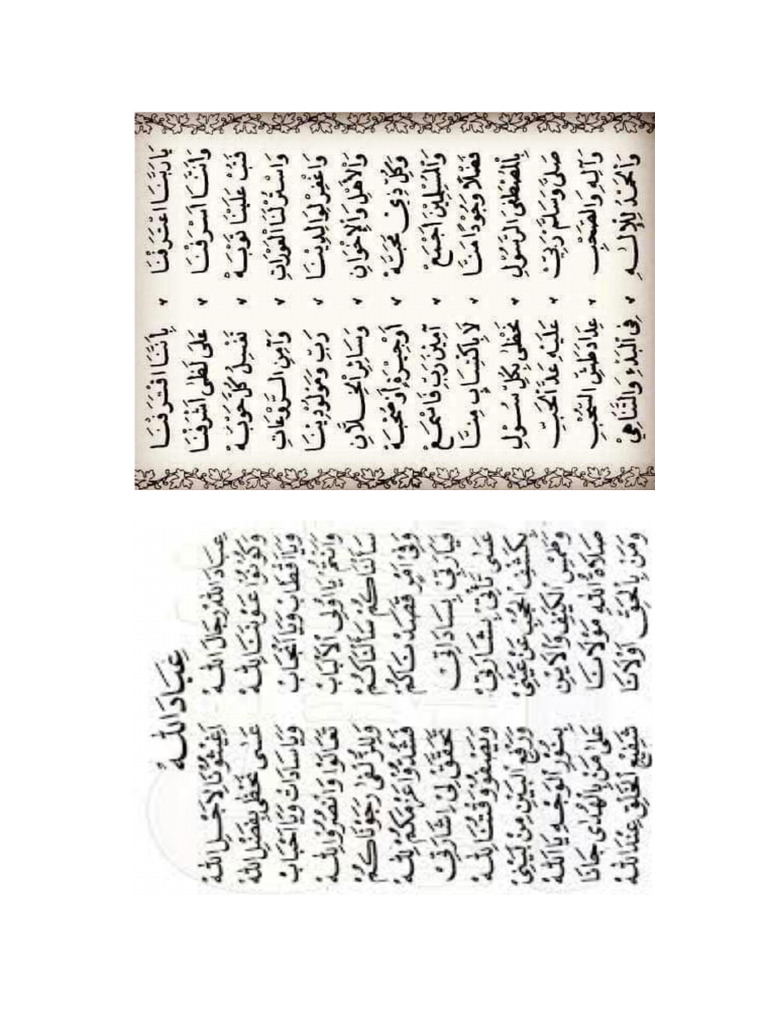 يَا رَبَّنَا اعْتَرَفْنَا ٭ بِأَنَّنَا اقْتَرَفْنَا
وَأَنَّنَا أَسْرَفْنَا ٭ عَلَى لَظَى أَشْرَفْنَا
فَتُبْ عَلَيْنَا تَوْبَةْ ٭ تَغْسِلُ كُلَّ حَوْبَةْ
وَاسْتُرْ لَنَا الْعَوْرَاتِ ٭ وَآمِنِ الرَّوْعَاتِ
وَاغْفِرْ لِوَالِدِينَا ٭ رَبِّ وَمَوْلُودِينَا
وَالْأَهْلِ وَالْإِخْوَانِ ٭ وَسَائِرِ الْخِلَّانِ
وَكُلِّ ذِي مَحَبَّةْ ٭ أَوْ جِيرَةٍ أَوْ صُحْبَةْ
وَالْمُسْلِمِينَ أَجْمَعْ ٭ آمِينَ رَبِّ فَاسْمَعْ
فَضْلًا وَجُودًا مَنَّا ٭ لَا بِاكْتِسَابٍ مِنَّا
بِالْمُصْطَفَى الرَّسُولِ ٭ نَحْظَى بِكُلِّ سُولِ
صَلَّى وَسَلَّمْ رَبِّي ٭ عَلَيْهِ عَدَّ الْحَبِّ
وَآلِهِ وَالصَّحْبِ ٭ عِدَادَ طَشِّ السُّحْبِ
وَالْحَمْدُ لِلْإِلٰهِ ٭ فِي الْبَدْءِ وَالتَّنَاهِيْ
عِبَادَ اللهْ
عِبَادَ اللهْ رِجَالَ اللهْ أَغِيثُونَا لِأَجْلِ اللهْ
وَكُونُوا عَوْنَنَا لِلّٰهْ عَسَى نَحْظَى بِفَضْلِ اللهْ
وَيَا أَقْطَابْ وَيَا أَنْجَابْ وَيَا سَادَاتْ وَيَا أَحْبَابْ
وَأَنْتُمْ يَا أُولِي الْأَلْبَابْ تَعَالَوْا وَانْصُرُوا لِلّٰهْ
سَأَلْنَاكُمْ سَأَلْنَاكُمْ وَلِلزُّلْفَى رَجَوْنَاكُمْ
وَفِي أَمْرٍ قَصَدْنَاكُمْ فَشُدُّوا عَزْمَكُمْ لِلّٰهْ
فَيَا رَبِّي بِسَادَاتِي تَحَقَّقْ لِي إِشَارَاتِي
عَسَى تَأْتِي بِشَارَاتِي وَيَصْفُو وَقْتُنَا لِلّٰهْ
بِكَشْفِ الْحُجْبِ عَنْ عَيْنِي وَرَفْعِ الْبَيْنِ مِنْ بَيْنِي
وَطَمْسِ الْكَيْفِ وَالْأَيْنِ بِنُورِ الْوَجْهِ يَا اَللهْ
صَلَاةُ اللهْ مَوْلَانَا عَلَى مَنْ بِالْهُدَى جَانَا
وَمَنْ بِالْحَقِّ أَوْلَانَا شَفِيعِ الْخَلْقِ عِنْدَ اللهْ